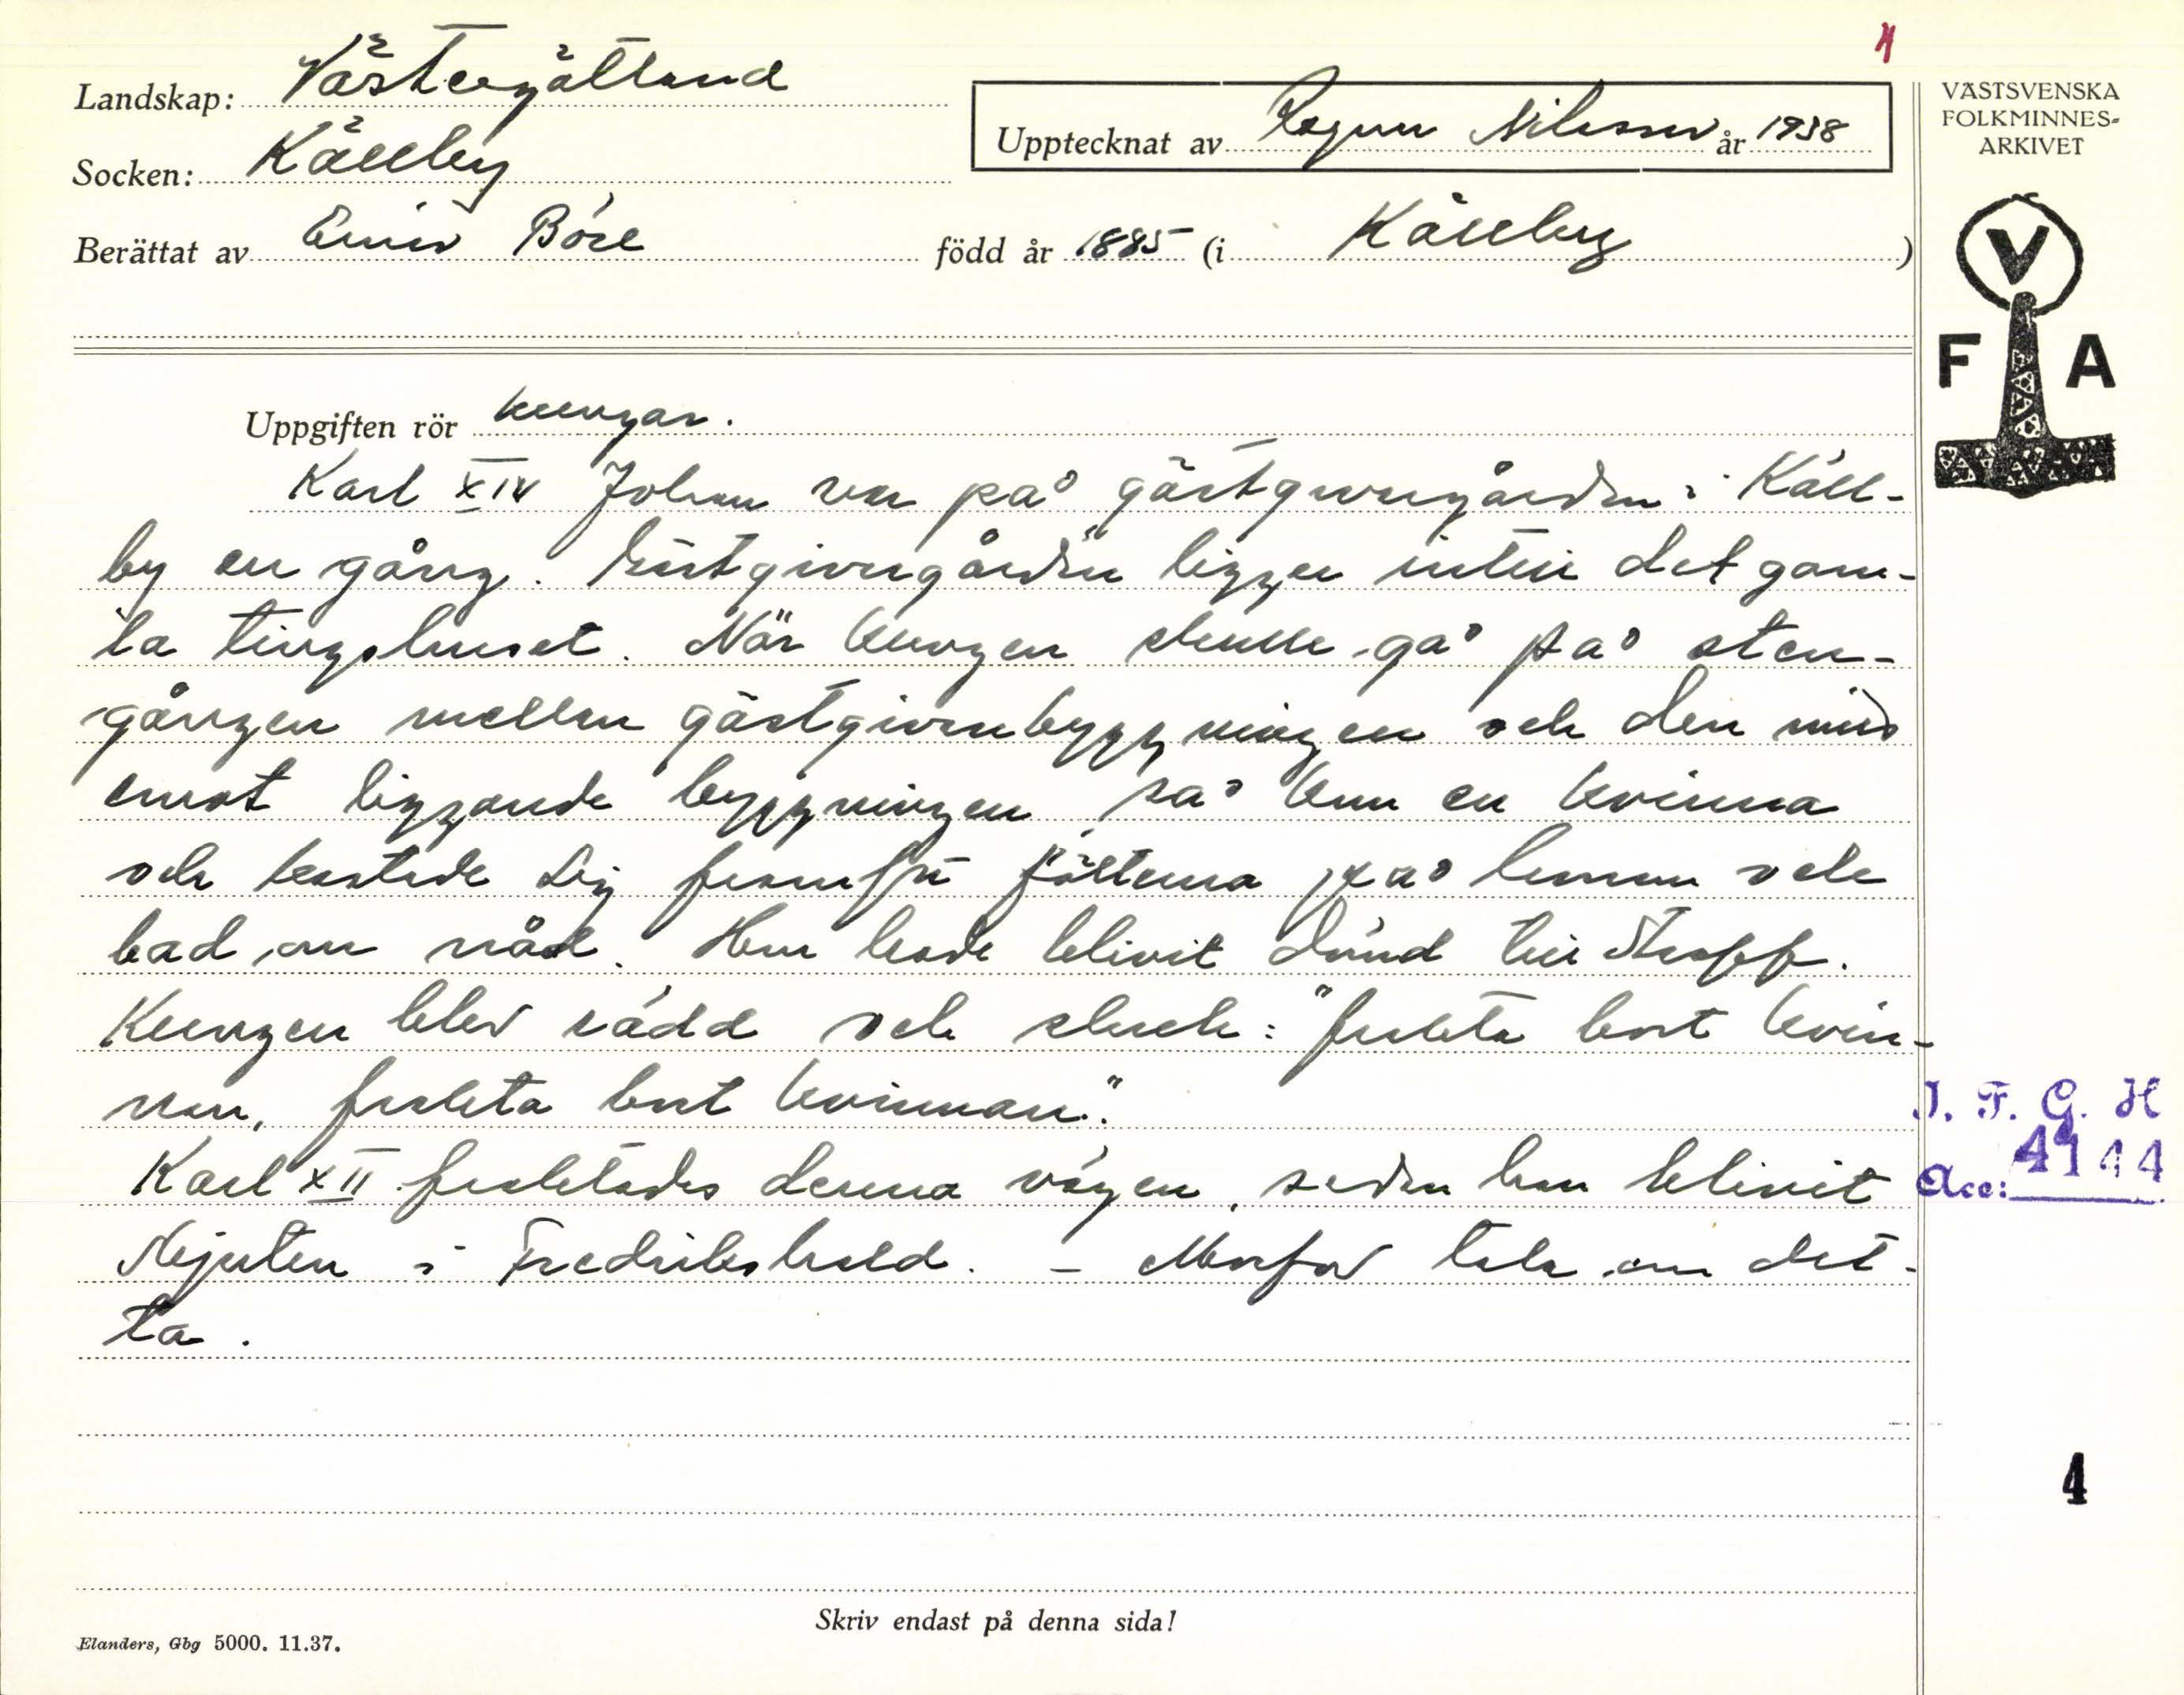 4
Landskap: Västergötland
Upptecknat av Ragnar Nilsson år 1938
VÄSTSVENSKA
FOLKMINNES-
ARKIVET
Socken: Källby
Berättat av Emil född år 1885 (i Källby)
V
F A
Uppgiften rör kungar.
Karl XIV Johan var på gästgivargården i Käll-
by en gång. Gästgivargården ligger intill det gam-
la tingshuset. När kungen skulle gå på sten-
gången mellan gästgivarebyggningen och den mitt
emot liggande byggningen, så kom en kvinna
och kastade sig framför fötterna på honom och
bad om nåd. Hon hade blivit dömd till straff.
Kungen blev rädd och skrek: "frakta bort kvin-
nan, frakta bort kvinnan."
Karl XII fraktades denna vägen, sedan han blivit
skjuten i Fredrikshald. - Morfar tala om det-
ta.
I. F. G. H
Acc: 4144
4
Skriv endast på denna sida!
Elanders, Gbg 5000. 11.37.